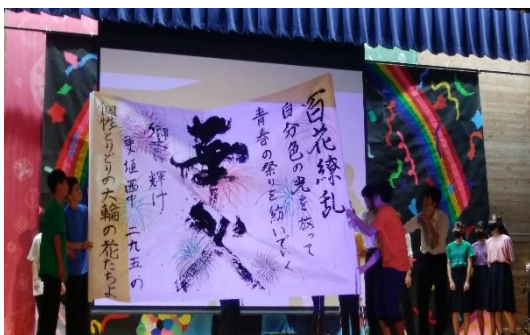 百花繚乱
自分色の光を放って
青春の祭りを紡いでいく
華火
輝け
西中 二九五の
個性とりどりの大輪の花たちよ